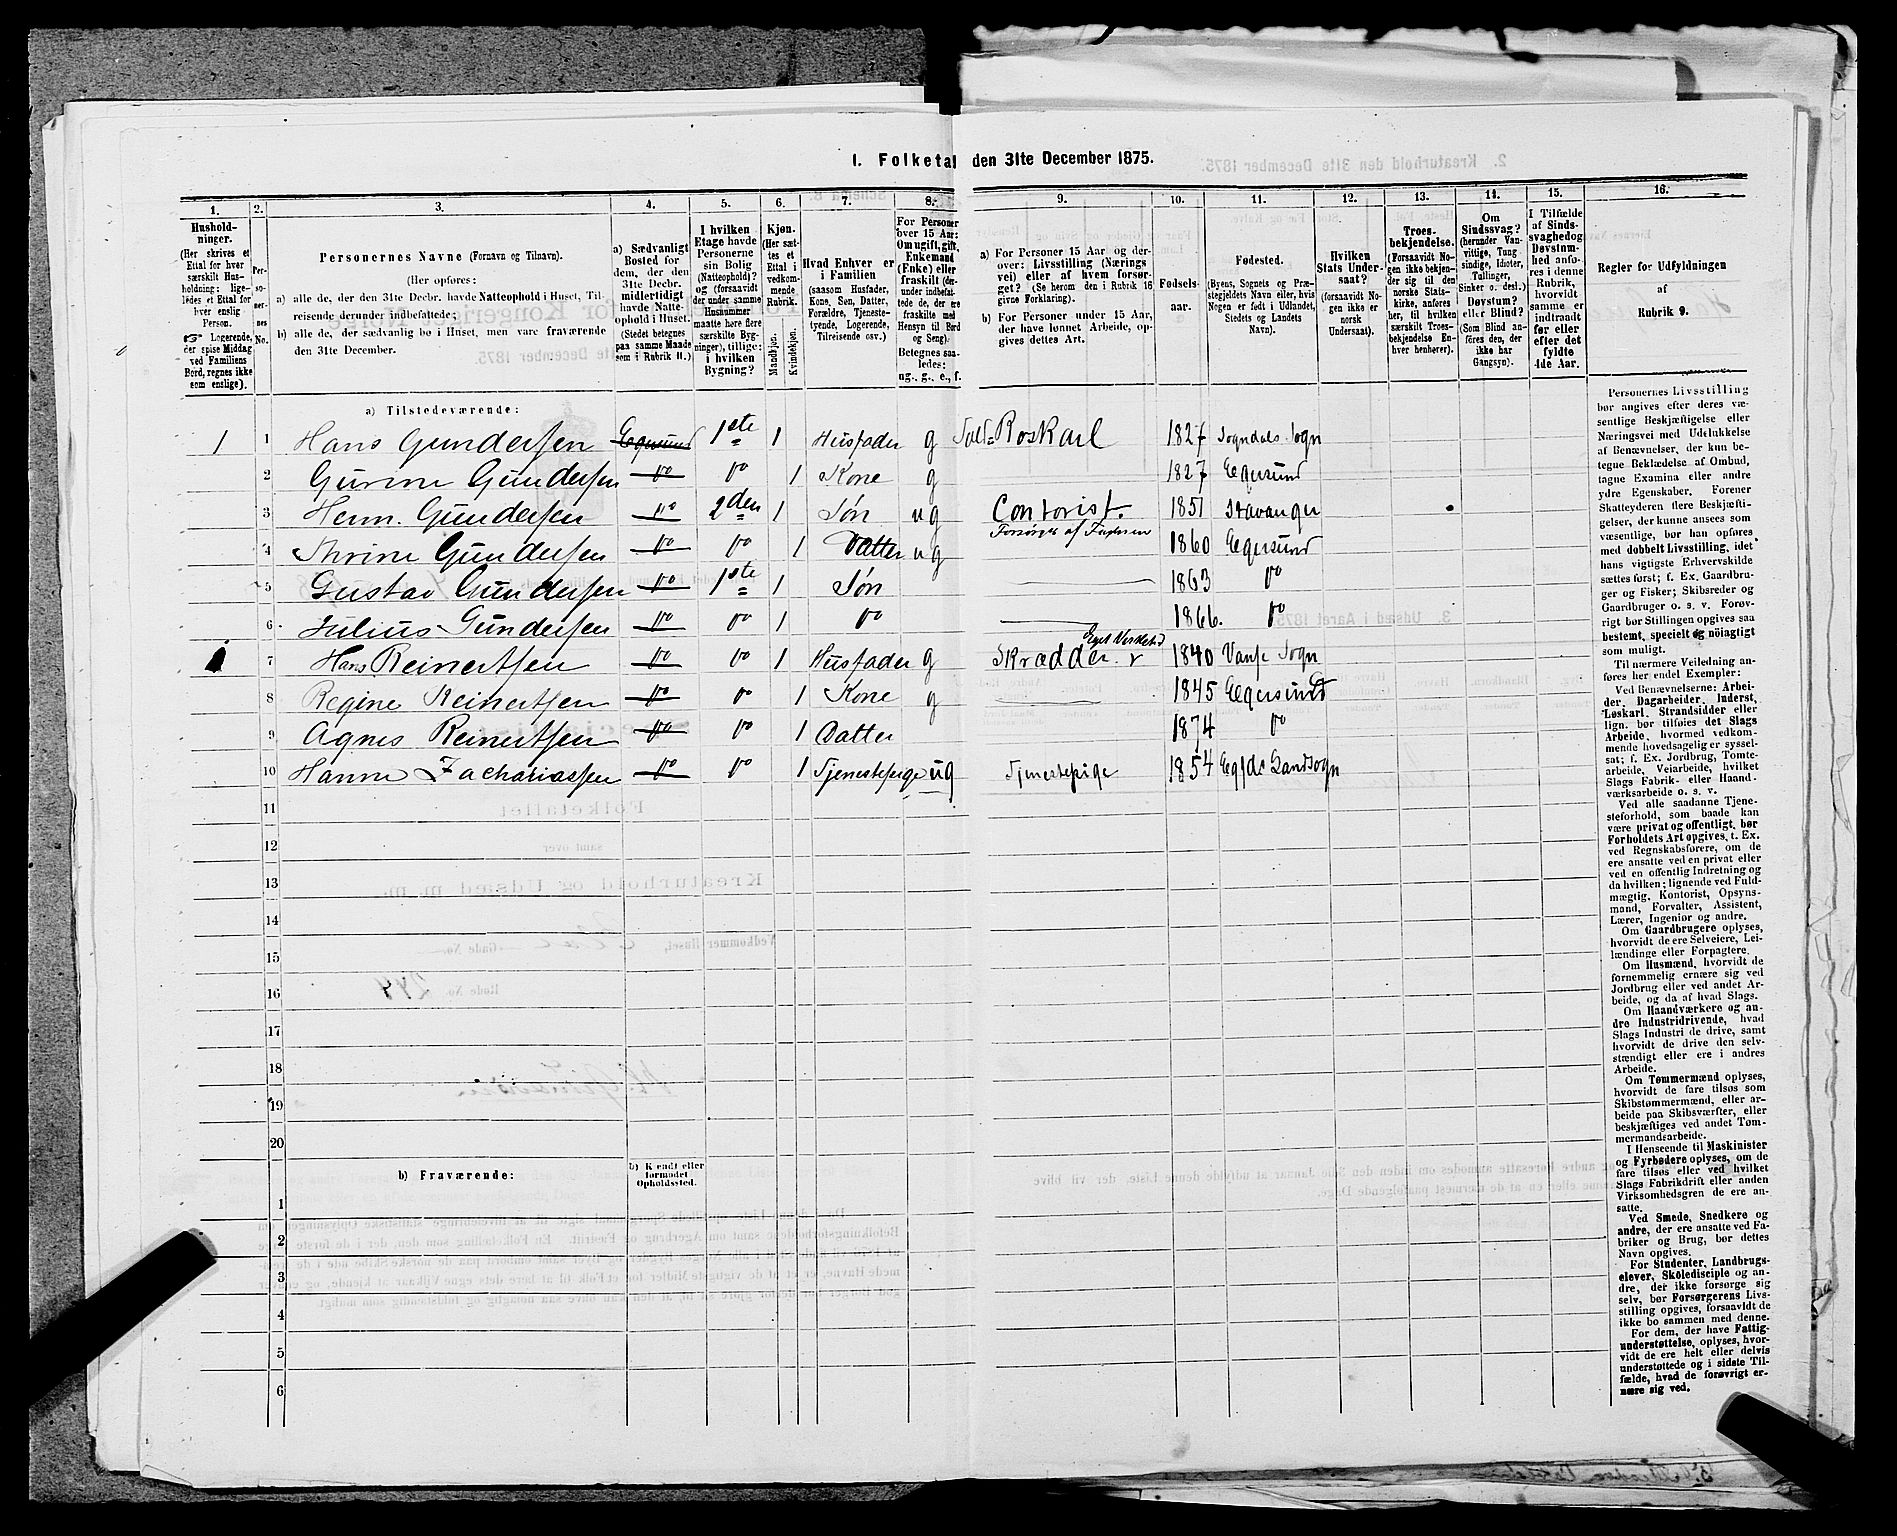 1. Folketal den 31te December 1875.
1. 2. 3. 4. 5. 6. 7. 8. 9. 10. 11. 12. 13. 14. 15. 16.
Husholdninger.
(Her skrives et
Ettal for hver
særskilt Husholdning:
ligeledes
et Ettal for
hver enslig
Person.
Logerende,
der spise Middag
ved Familiens
Bord, regnes ikke
som enslige).
Personernes No.
Personernes Navne (Fornavn og Tilnavn).
(Her opføres:
a) alle de, der den 31te Decbr. havde Natteophold i Huset, Tilreisende
derunder indbefattede;
b) alle de, der sædvanlig bo i Huset, men vare fraværende
den 31te December.
a) Sædvanligt
Bosted for
dem, der den
31te Decbr.
midlertidigt
havde Natteophold
i Huset.
(Stedet betegnes
paa samme Maade
som i Rubrik 11.)
I hvilken
Etage havde
Personerne
sin Bolig
(Natteophold)?
og (forsaavidt
der under samme
Husnummer
maatte høre flere
særskilte Bygninger),
tillige:
i hvilken
Bygning?
Kjøn.
(Her sættes
et
Ettal i
vedkommende
Rubrik.
Mandkjøn.
Kvindekjøn.
Hvad Enhver er
i Familien
(saasom Husfader,
Kone, Søn, Datter,
Forældre, Tjenestetyende,
Logerende,
Tilreisende osv.)
For Personer
over 15 Aar:
Om ugift, gift,
Enkemand
(Enke) eller
fraskilt (derunder
indbefattede
de, der ere
fraskilte med
Hensyn til Bord
og Seng):
Betegnes saaledes:
ug., g., e., f.
a) For Personer 15 Aar og derover:
Livsstilling (Næringsvei)
eller af hvem forsørget?
(Se herom den i Rubrik 16
givne Forklaring).
b) For Personer under 15 Aar,
der have lønnet Arbeide, opgives
dettes Art.
Fødselsaar.
Fødested.
(Byens, Sognets og Præstegjeldets
Navn eller, hvis
Nogen er født i Udlandet,
Stedets og Landets
Navn).
Hvilken
Stats Undersaat?
(forsaavidt Nogen
ikke er
norsk
Undersaat).
Troesbekjendelse.
(Forsaavidt Nogen
ikke bekjender
sig til den
norske Statskirke,
anføres
her, til hvilken
særskilt Troesbekjendelse
Enhver
henhører).
Om
Sindssvag?
(herunder Vanvittige,
Tungsindige,
Idioter,
Tullinger,
Sinker o. desl.)
Døvstum?
eller Blind?
(Som Blind anføres
den, der
ikke har
Gangsyn).
I Tilfælde
af Sindssvaghed
og
Døvstumhed
anføres
i denne
Rubrik,
hvorvidt
samme er
indtraadt
før eller
efter det
fyldte
4de Aar.
Regler for Udfyldningen
af
Rubrik 9.
a) Tilstedeværende:
1 1 Hans Gundersen Egersund 1ste 1 Husfader g Roskarl 1827 Sogndals Sogn
2 Gurine Gundersen do do 1 Kone g 1827 Egersund
3 Herm. Gundersen do 2den 1 Søn ug Contorist. 1851 Stavanger
4 Thrine Gundersen do do 1 Datter ug Forsørges af Faderen 1860 Egersund
5 Gustav Gundersen do 1ste 1 Søn 1863 do
6 Julius Gundersen do do 1 do 1866. do
7 Hans Reinertsen do do 1 Husfader g Skrædder Eget Værksted 1840 Vanse Sogn
8 Regine Reinertsen do do 1 Kone g 1845 Egersund
9 Agnes Reinertsen do do 1 Datter 1874 do
10 Hanne Zachariassen do do 1 Tjenestepige ug Tjenestepige 1854 Landsogn
11
12
13
14
15
16
17
18
19
20
b) Fraværende:
b) Kjendt eller
formodet
Opholdssted.
1
2
3
4
5
6
Personernes Livsstilling
bør angives efter deres væsentlige
Beskjæftigelse eller
Næringsvei med Udelukkelse
af Benævnelser, der kun betegne
Beklædelse af Ombud,
tagne Examina eller andre
ydre Egenskaber. Forener
Skatteyderen flere Beskjæftigelser,
der kunne ansees som
væsentlige, bør han opføres
med dobbelt Livsstilling, idet
hans vigtigste Erhvervskilde
sættes først; f. Ex. Gaardbruger
og Fisker; Skibsreder og
Gaardbruger o. s. v. Forøvrigt
bør Stillingen opgives saa
bestemt, specielt og nöiagtigt
som muligt.
Til nærmere Veiledning anføres
her endel Exempler:
Ved Benævnelserne: Arbeider,
Dagarbeider, Inderst,
Løskarl, Strandsidder eller
lign. bør tilføies det Slags
Arbeide, hvormed vedkommende
hovedsagelig er sysselsat;
f. Ex. Jordbrug, Tomtearbeide,
Veiarbeide, hvilket
Slags Fabrik- eller Haandværksarbeide
o. s. v.
Ved alle saadanne Tjenesteforhold,
som baade kan
være privat og offentligt, bør
Forholdets Art opgives, t. Ex.
ved Regnskabsførere, om de
ere ansatte ved en privat eller
ved en offentlig Indretning og
da hvilken; lignende ved Fuldmægtig,
Kontorist, Opsynsmand,
Forvalter, Assistent,
Lærer, Ingeniør og andre.
Om Gaardbrugere oplyses,
hvorvidt de ere Selveiere, Leilændinge
eller Forpagtere.
Om Husmænd, hvorvidt de
fornemmelig ernære sig ved
Jordbrug eller ved andet Arbeide,
og da af hvad Slags.
Om Haandværkere og andre
Industridrivende, hvad
Slags Industri de drive, samt
hvorvidt de drive den selvstændigt
eller ere i andres
Arbeide.
Om Tømmermænd oplyses,
hvorvidt de fare tilsøs som
Skibstømmermænd, eller arbeide
paa Skibsværfter, eller
beskjæftiges ved andet Tømmermandsarbeide.
I Henseende til Maskinister
og Fyrbødere oplyses, om de
fare tilsøs eller ved hvilket
Slags Fabrikdrift eller anden
Virksomhedsgren de ere ansatte.
Ved Smede, Snedkere og
andre, der ere ansatte ved Fabriker
og Brug, bør dettes
Navn opgives.
For Studenter, Landbrugselever,
Skoledisciple og andre,
der ikke forsørge sig
selv, bør Forsørgerens Livsstilling
opgives, forsaavidt de
ikke bo sammen med denne.
For dem, der have Fattigunderstøttelse,
oplyses, hvorvidt
de ere helt eller delvis
understøttede og i sidste Tilfælde,
hvad de forøvrigt ernære
sig ved.